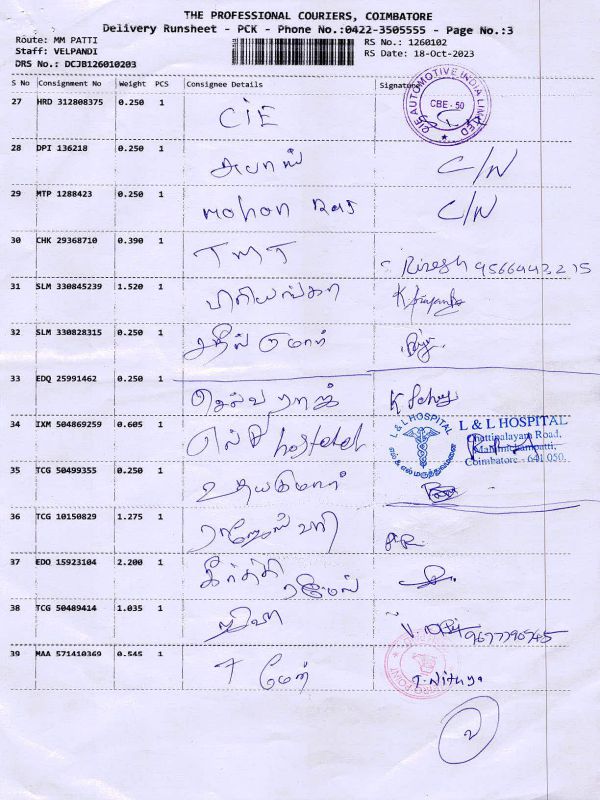 THE PROFESSIONAL COURIERS, COIMBATORE
Delivery Runsheet - PCK - Phone No.:0422-3505555 - Page No.:3
Route: MM PATTI RS No.: 1260102
Staff: VELPANDI RS Date: 18-Oct-2023
DRS No.: DCJB126010203
S No Consignment No Weight PCS Consignee Details Signature
27 HRD 312808375 0.250 1 CIE CIE AUTOMOTIVE INDIA LIMITED CBE - 50
28 DPI 136218 0.250 1 C/N
29 MTP 1288423 0.250 1 mohon Raj C/N
30 CHK 29368710 0.390 1 TMT
31 SLM 330845239 1.520 1 பிரியங்கா K. Priyanka
32 SLM 330828315 0.250 1 சதீஸ் குமார்
33 EDQ 25991462 0.250 1 செல்வ ராஜ்
34 IXM 504869259 0.605 1 எல் L & L HOSPITAL எல் & எல் மருத்துவமனை L & L HOSPITAL
Chettipalayam Road,
Mallumichampatti,
Coimbatore - 641 050.
35 TCG 50499355 0.250 1 உதயகுமார்
36 TCG 10150829 1.275 1 ராஜேஸ்வரி
37 EDO 15923104 2.200 1 கீர்த்தி
ரமேஸ்
38 TCG 50489414 1.035 1
39 MAA 571410369 0.545 1 T. Nithya
2